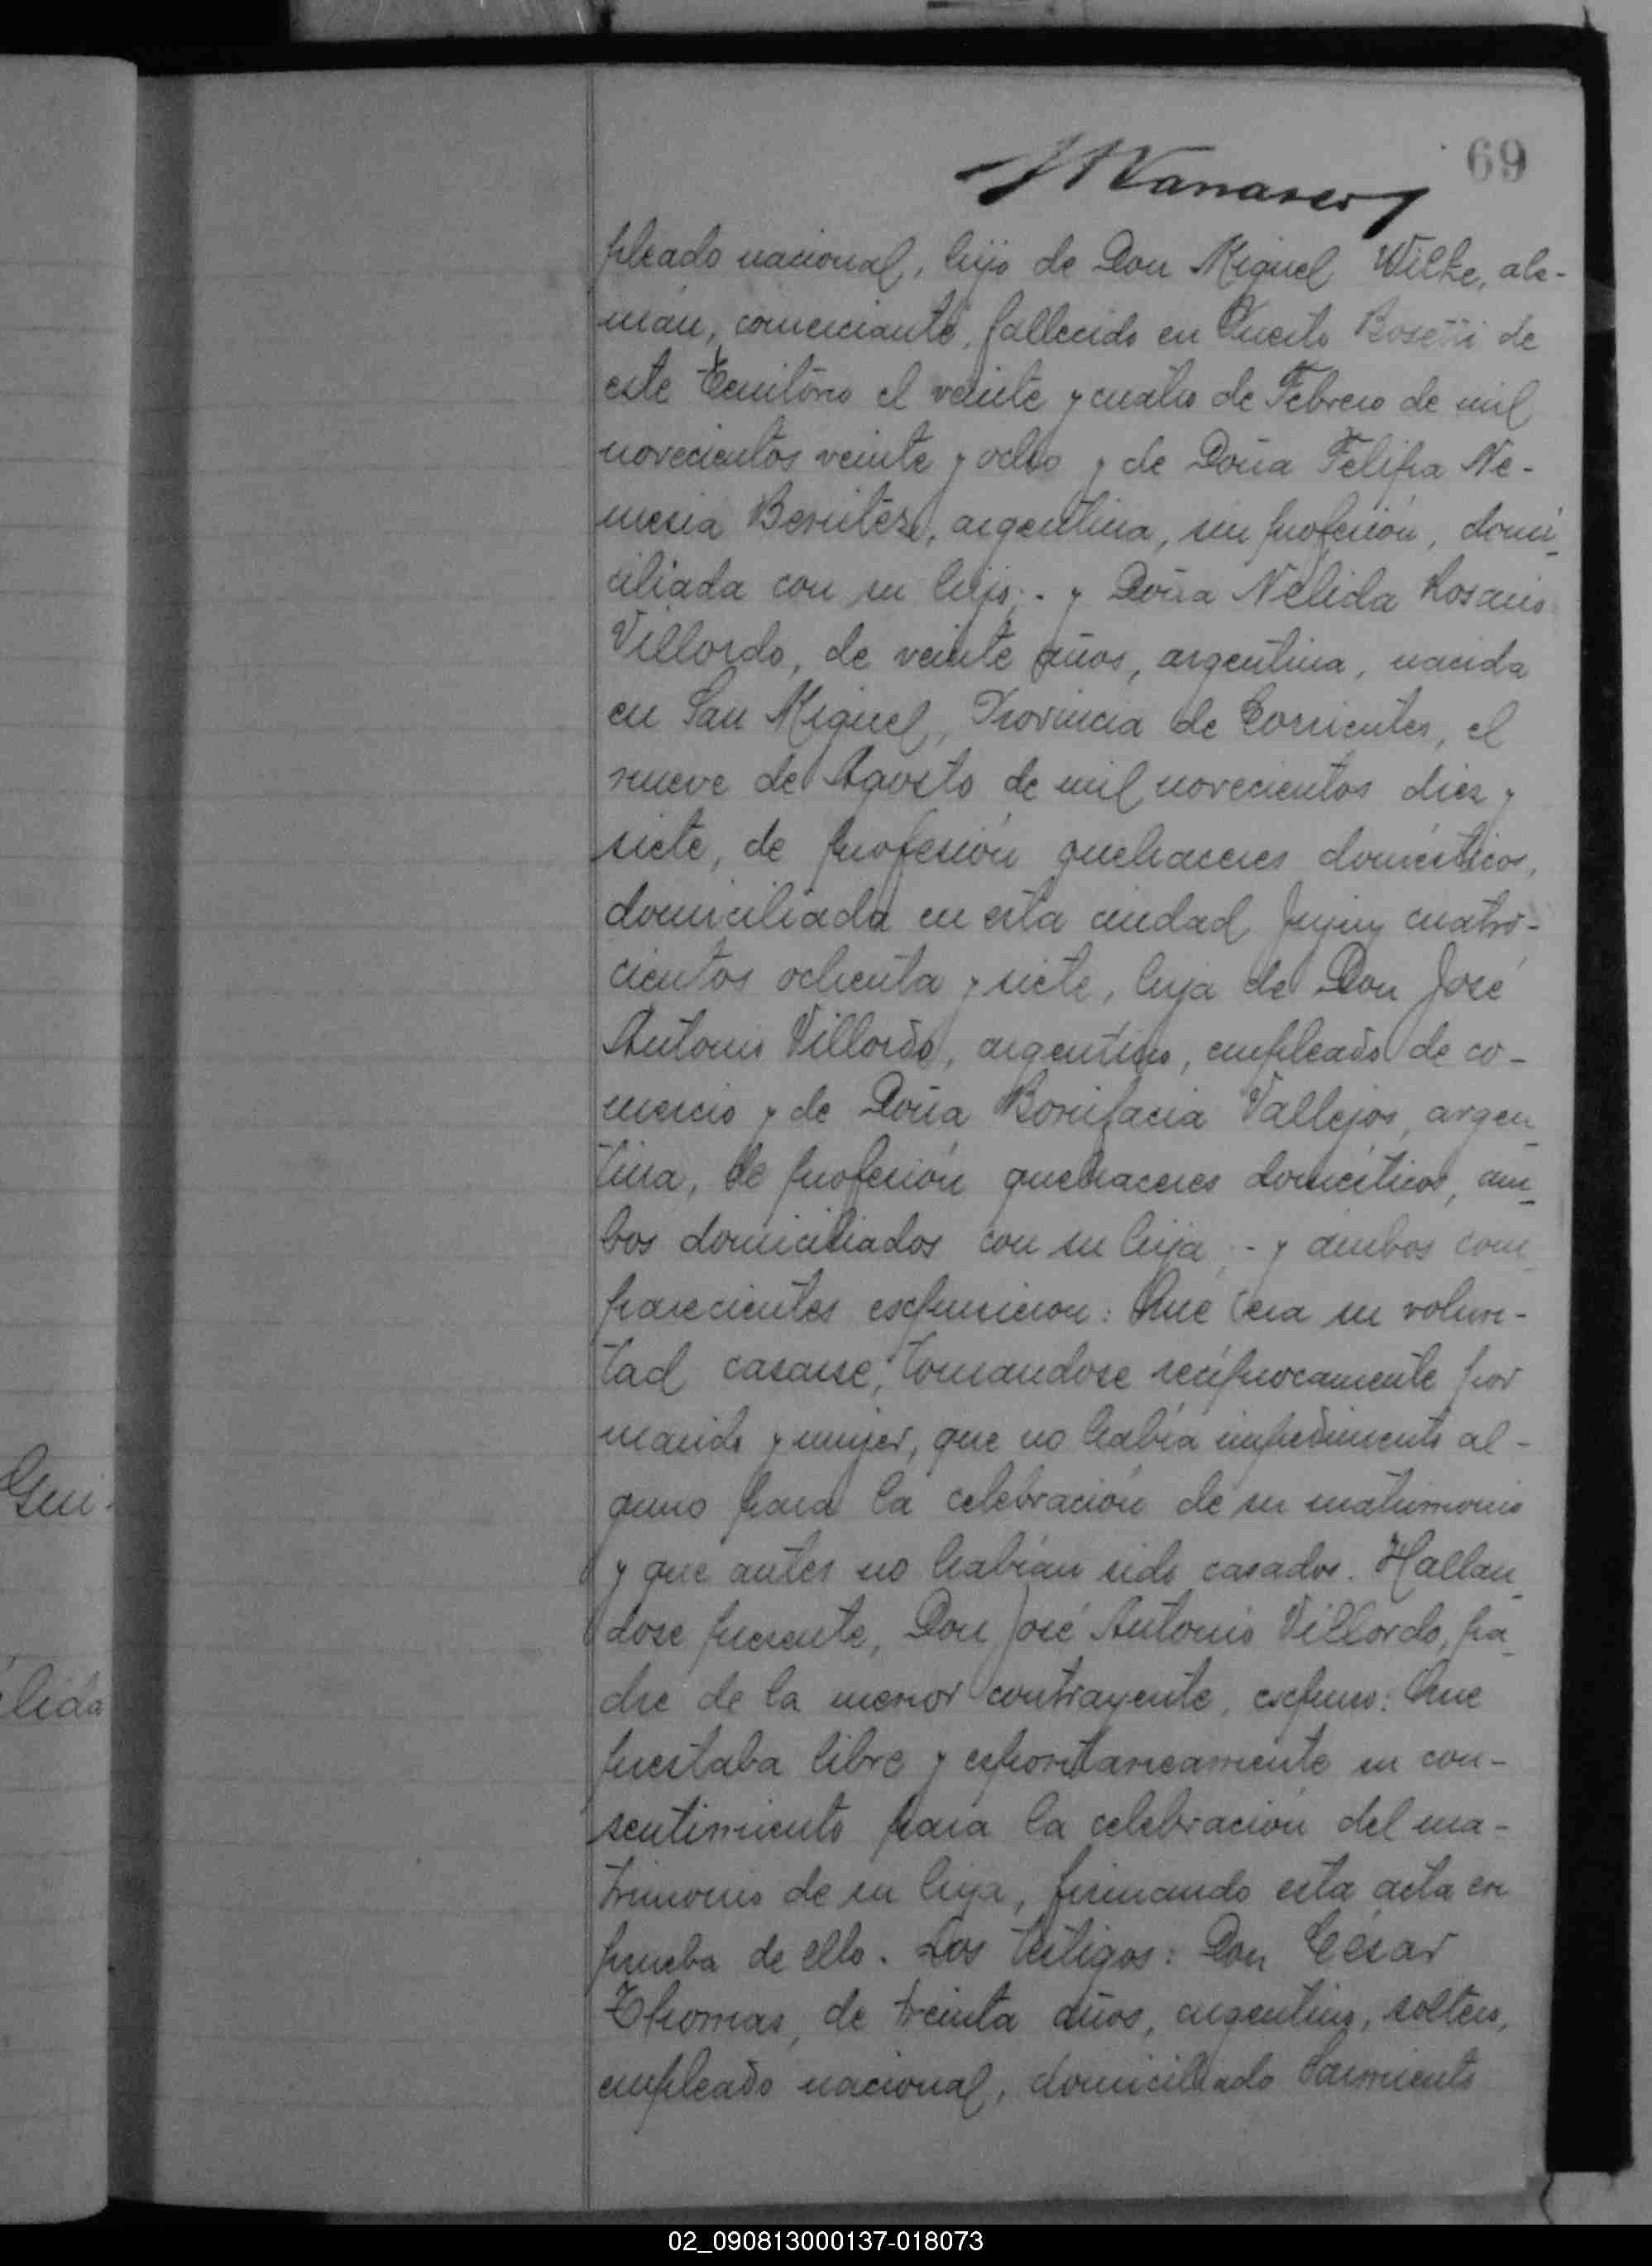 69
pleado nacional, hijo de Don Miguel Wilke, ale-
mán, comerciante, fallecido en Puerto Rosetti de
este Territorio el veinte y cuatro de Febrero de mil
novecientos veinte y ocho y de Doña Felipa Ne-
mesia Benitez, argentina, sin profesión, domi-
ciliada con su hijo; - y Doña Nelida Rosario
Villordo, de veinte años, argentina, nacida
en San Miguel, Provincia de Corrientes, el
nueve de Agosto de mil novecientos diez y
siete, de profesión quehaceres domésticos,
domiciliada en esta ciudad Jujuy cuatro-
cientos ochenta y siete, hija de Don José
Antonio Villordo, argentino, empleado de co-
mercio y de Doña Bonifacia Vallejos, argen-
tina, de profesión quehaceres domésticos, am-
bos domiciliados con su hija; - y ambos com
parecientes espusieron: Que era su volun-
tad casarse, tomandose recíprocamente por
marido y mujer, que no había impedimento al-
guno para la celebración de su matrimonio
y que antes no habían sido casados. Hallan-
dose presente, Don José Antonio Villordo, pa-
dre de la menor contrayente, espuso: Que
prestaba libre y espontaneamente su con-
sentimiento para la celebración del ma-
trimonio de su hija, firmando esta acta en
prueba de ello. Los testigos: Don César
Thomas, de treinta años, argentino, soltero,
empleado nacional, domiciliado Sarmiento
Gui-
lida
02_090813000137-018073